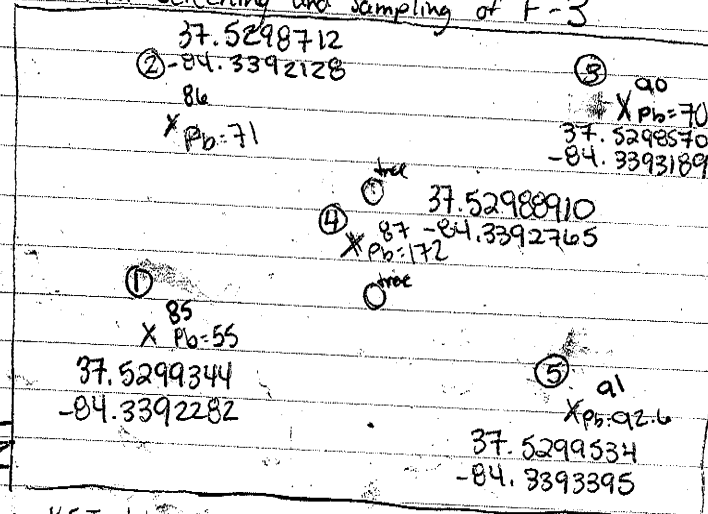 screening and sampling of F-3
37.5298712
② -84.3392128
86
X Pb=71
③
90
X Pb=70
37.5298570
-84.3393189
tree
37.52988910
④ 87 -84.3392765
X Pb=172
tree
①
85
X Pb=55
37.5299344
-84.3392282
⑤
91
X Pb=92.6
37.5299534
-84.3393395